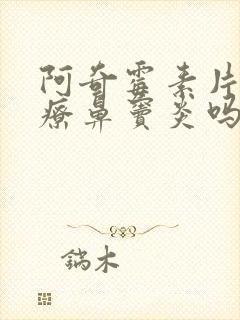 阿奇霉素片
疗鼻窦炎吗
鎬木